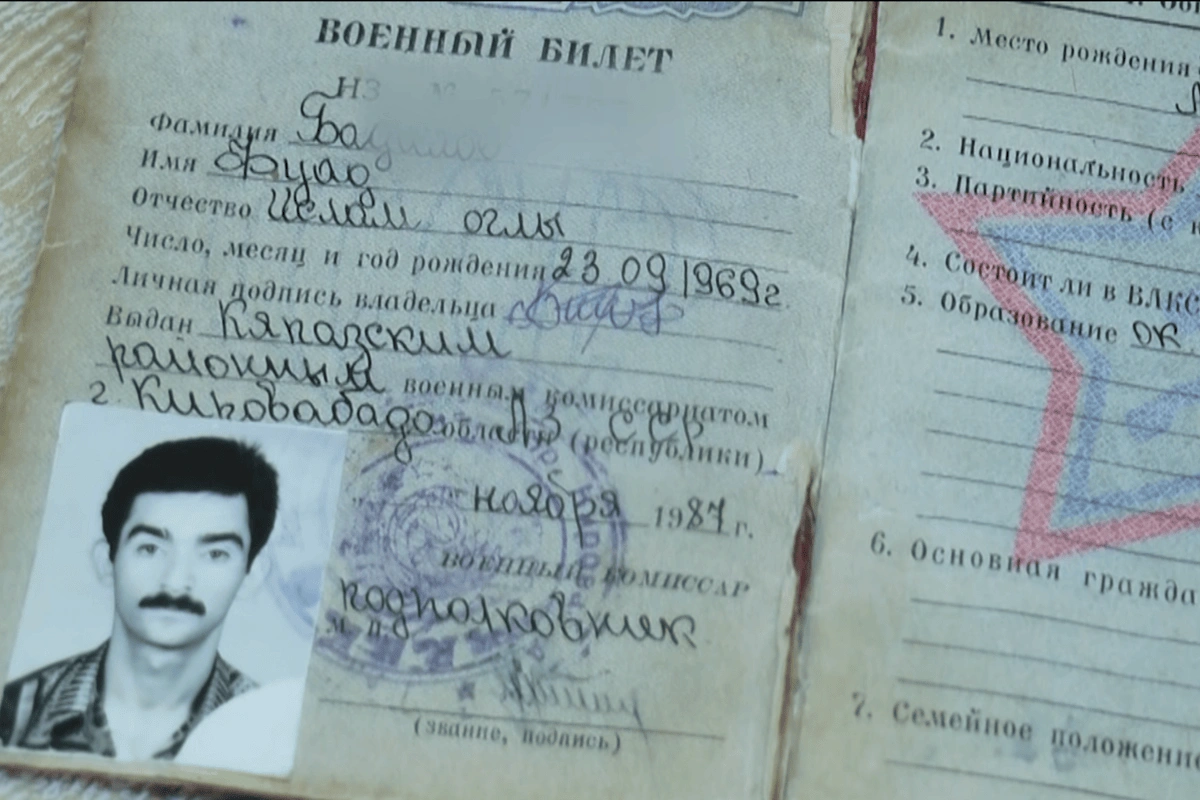 ВОЕННЫЙ БИЛЕТ
НЗ
Фамилия
Имя Фуад
Отчество Ислам оглы
Число, месяц и год рождения 23 09 1969г.
Личная подпись владельца
Выдан Кяпазским
районным военным комиссариатом
г. Кировабада Аз ССР области (республики)
ноября 1987 г.
ВОЕННЫЙ КОМИССАР
подполковник
М. П.
(звание, подпись)
1. Место рождения
2. Национальность
3. Партийность (с
4. Состоит ли в ВЛКС
5. Образование
6. Основная гражда
7. Семейное положение